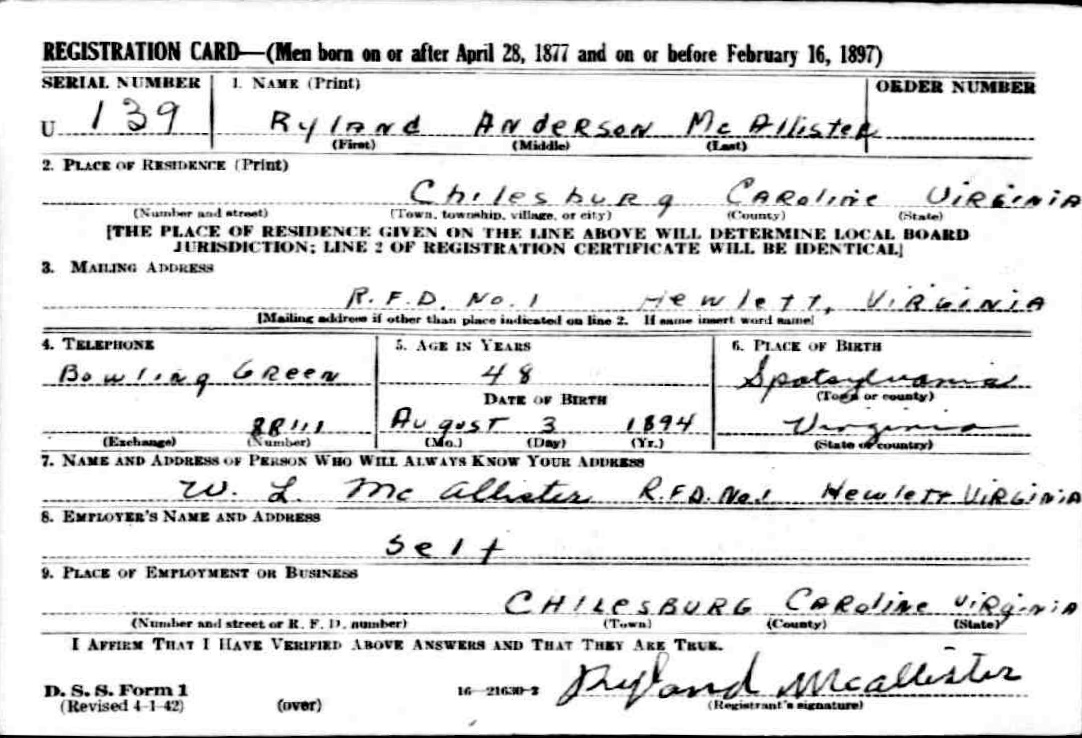 REGISTRATION CARD—(Men born on or after April 28, 1877 and on or before February 16, 1897)
SERIAL NUMBER 1. NAME (Print) ORDER NUMBER
U 139 Ryland Anderson McAllister
(First) (Middle) (Last)
2. PLACE OF RESIDENCE (Print)
Chilesburg Caroline Virginia
(Number and street) (Town, township, village, or city) (County) (State)
[THE PLACE OF RESIDENCE GIVEN ON THE LINE ABOVE WILL DETERMINE LOCAL BOARD
JURISDICTION; LINE 2 OF REGISTRATION CERTIFICATE WILL BE IDENTICAL]
3. MAILING ADDRESS
R.F.D. No. 1 Hewlett, Virginia
[Mailing address if other than place indicated on line 2. If same insert word same]
4. TELEPHONE 5. AGE IN YEARS 6. PLACE OF BIRTH
Bowling Green 48 Spotsylvania
DATE OF BIRTH (Town or county)
August 3 1894 Virginia
(Exchange) (Number) (Mo.) (Day) (Yr.) (State or country)
7. NAME AND ADDRESS OF PERSON WHO WILL ALWAYS KNOW YOUR ADDRESS
W. L. McAllister R.F.D. No. 1 Hewlett Virginia
8. EMPLOYER'S NAME AND ADDRESS
Self
9. PLACE OF EMPLOYMENT OR BUSINESS
CHILESBURG Caroline Virginia
(Number and street or R. F. D. number) (Town) (County) (State)
I AFFIRM THAT I HAVE VERIFIED ABOVE ANSWERS AND THAT THEY ARE TRUE.
D. S. S. Form 1 16—21630-2 Ryland McAllister
(Revised 4-1-42) (over) (Registrant's signature)